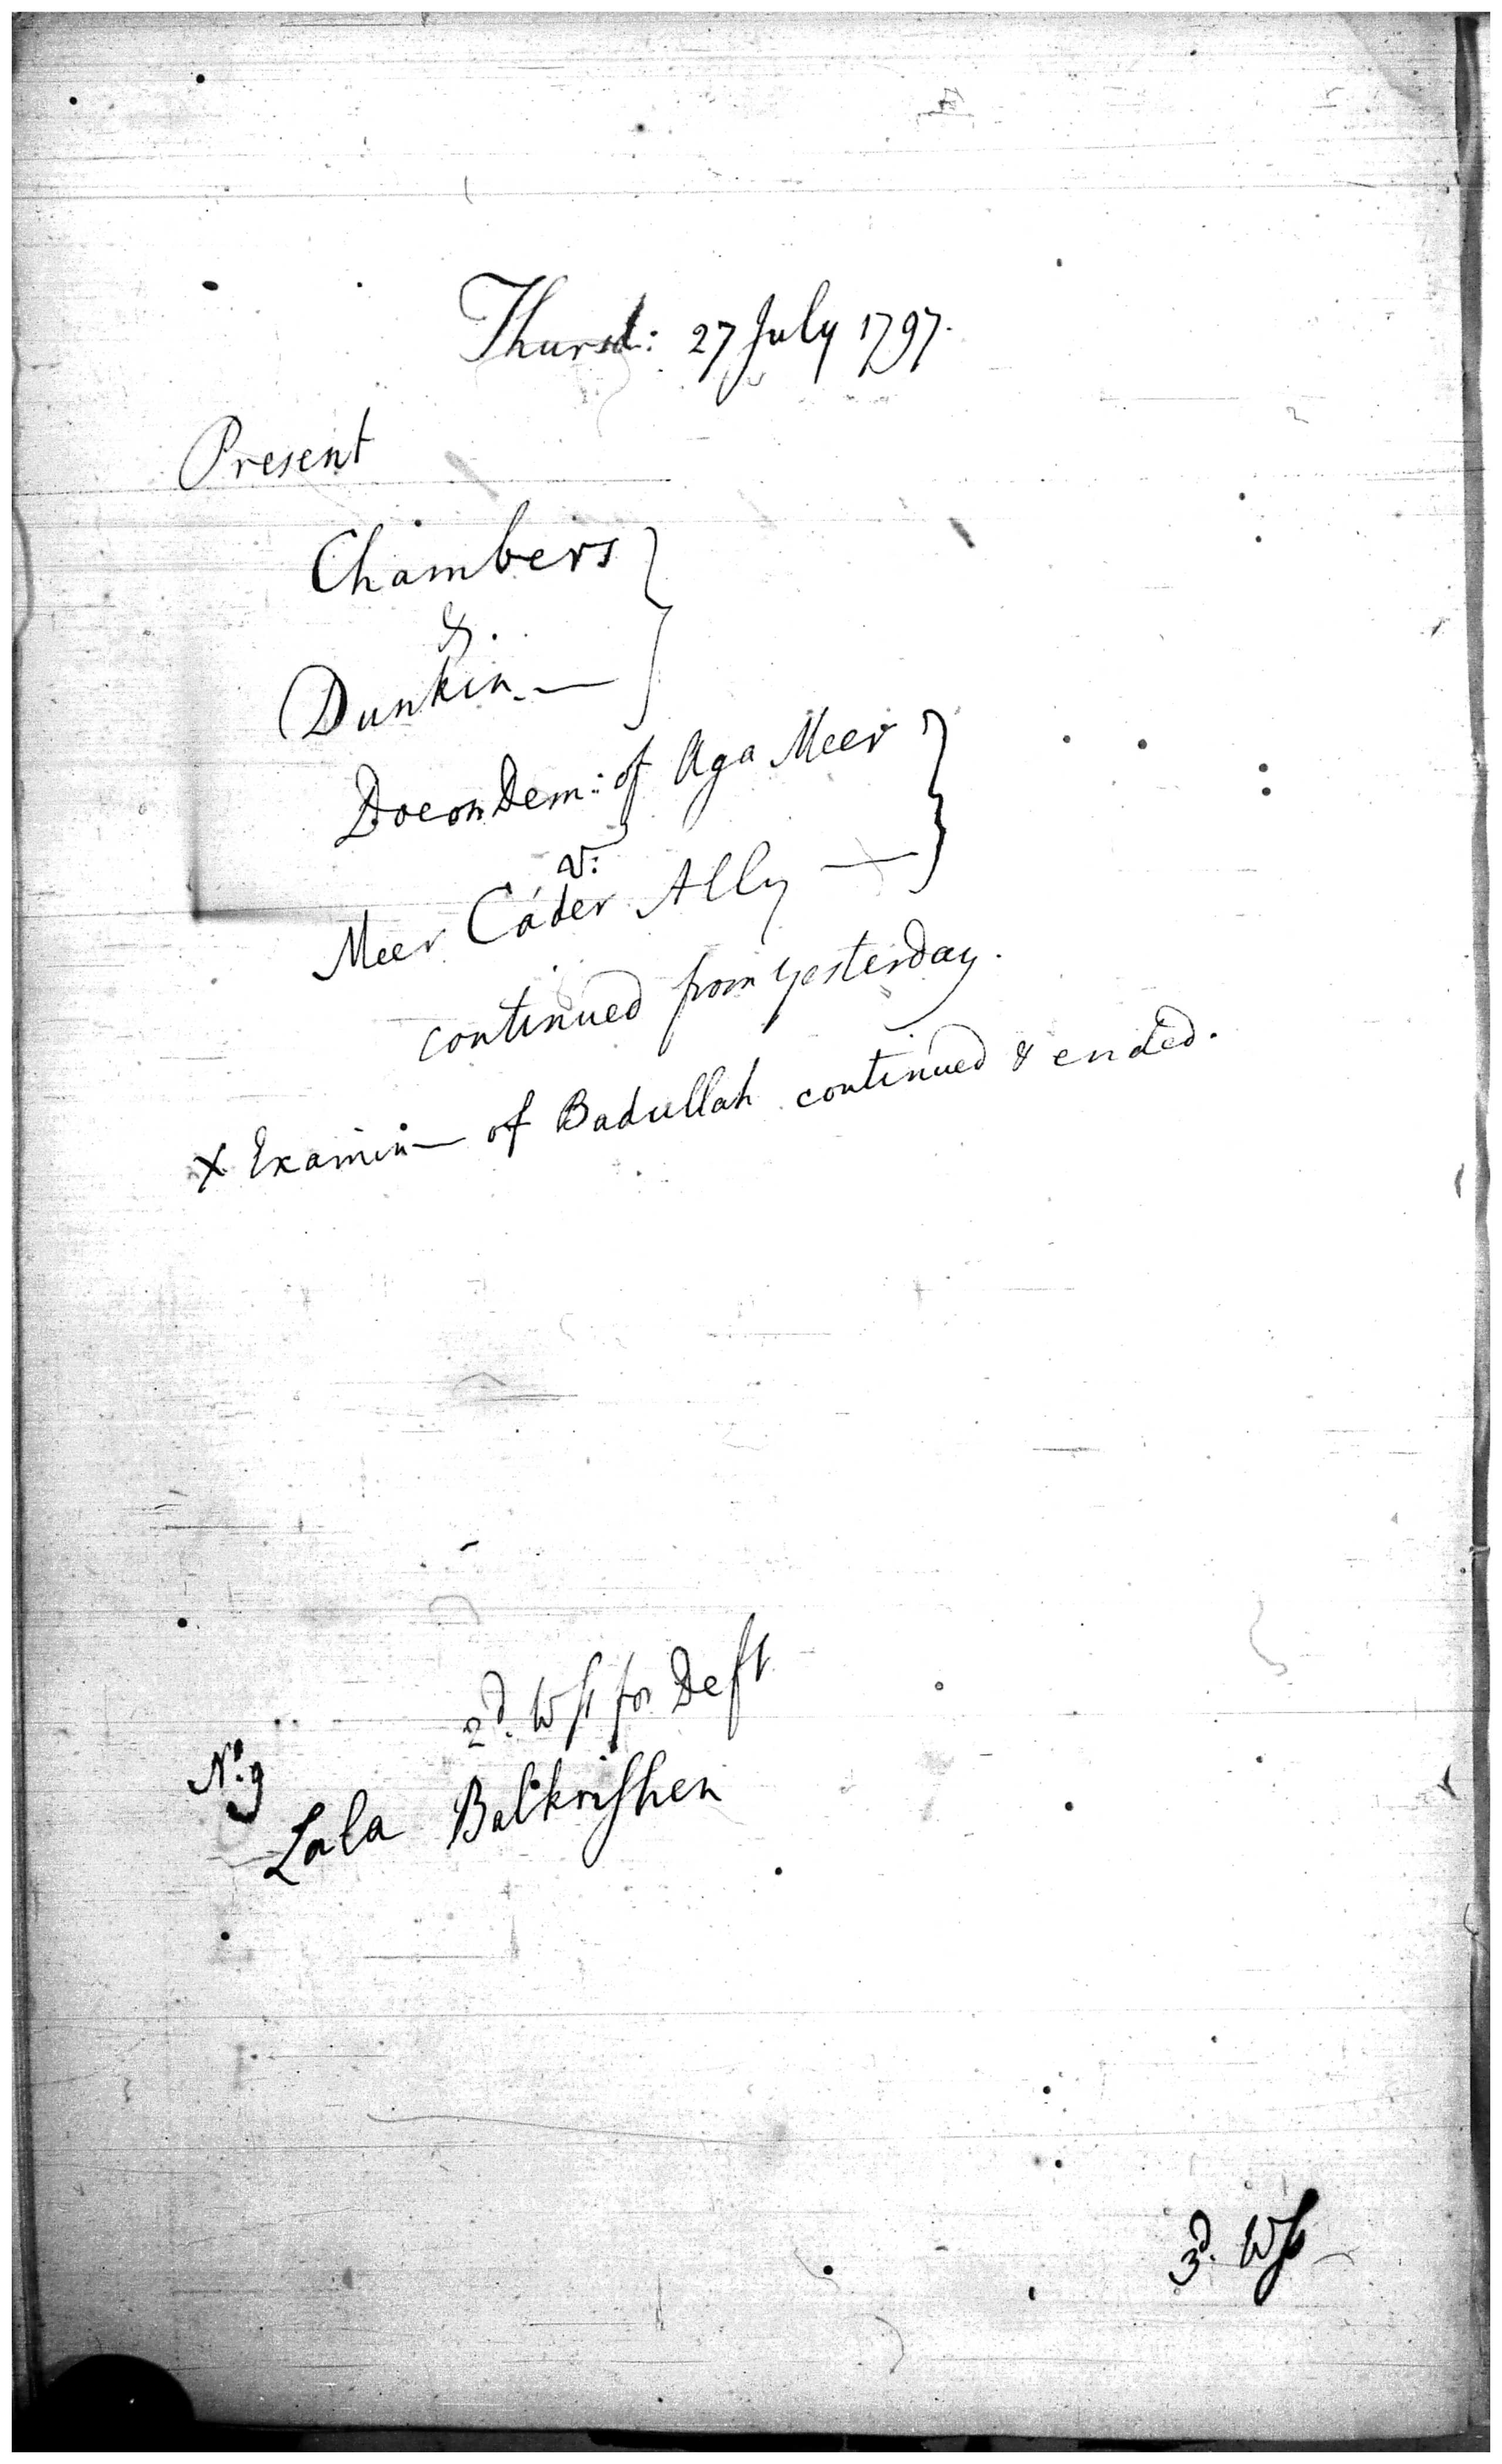 Thursd: 27 July 1797.
Present
Chambers
&.
Dunkin
Doe on Dem: of Aga Meer
v:
Meer Cáder Ally
continued from yesterday.
X Examin of Badullah continued & ended.
2d. Wss for Deft
No. 9
Lala Balkrishen
3d. Wss